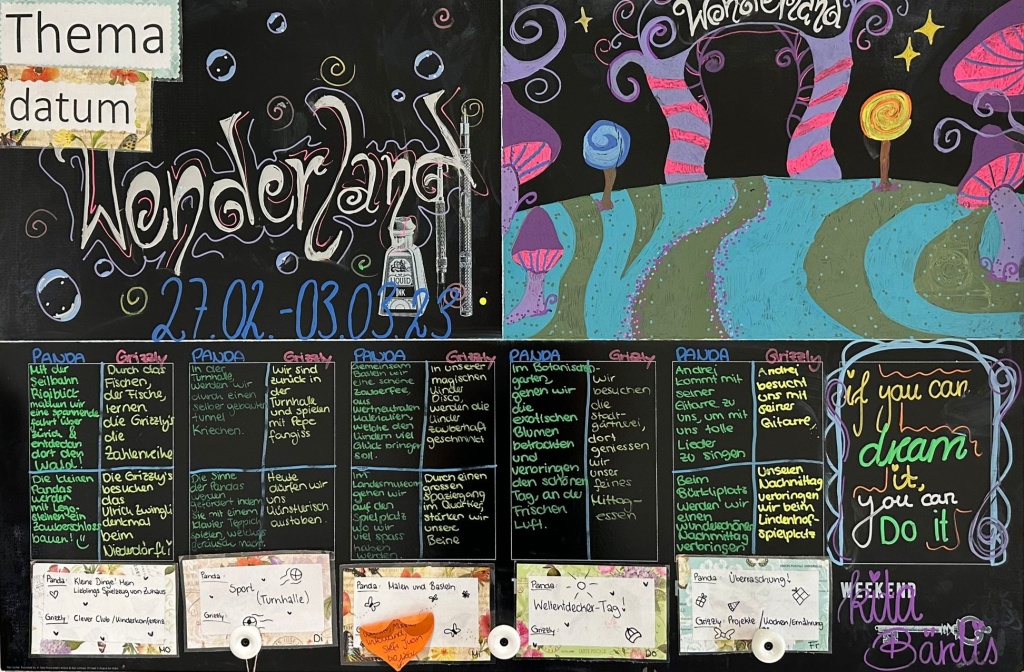 Thema
datum
Wonderland
LIQUID
INK
27.02.-03.03.23
Wonderland
PANDA
Mit der
Seilbahn
Rigiblick
machen wir
eine spannende
fahrt über
Zürich &
entdecken
dort den
Wald!
Die kleinen
Pandas
werden
mit Lego-
steinen ein
Zauberschloss
bauen!
Grizzly
Durch das
Fischen,
der Fische,
lernen
die Grizzly's
die
Zahlenreihe
Die Grizzly's
besuchen
das
Ulrich Zwingli
denkmal
beim
Niederdörfli!
PANDA
In der
Turnhalle,
werden wir
durch einen
selber gebauten
tunnel
Kriechen.
Die Sinne
der Pandas
werden
gefördert indem
Sie mit einem
Klavier Teppich
spielen, welches
Grizzly
Wir sind
zurück in
der
Turnhalle
und spielen
mit Pepe
fangis
Heute
dürfen wir
uns
künstlerisch
austoben.
PANDA
Gemeinsam
Basteln wir
eine schöne
Zauberfee,
aus
wertneutralen
Materialien,
welche den
Kindern viel
Glück bringen
soll.
Im
Landesmuseum
gehen wir
auf den
Spielplatz
wo wir
viel spass
haben
werden.
Grizzly
In unserer
magischen
Kinder
Disco,
werden die
Kinder
zauberhaft
geschminkt
Durch einen
grossen
spaziergang
im Quartier,
stärken wir
unsere
Beine
PANDA
Im Botanischen
garten,
gehen wir
die
exotischen
Blumen
betrachten
und
verbringen
den schönen
Tag, an der
Frischen
Luft.
Grizzly
Wir
besuchen
die
stadt-
gärtnerei,
dort
geniessen
wir
unser
feines
Mittag-
essen
PANDA
Andrei
kommt mit
seiner
Gitarre zu
uns, um mit
uns tolle
Lieder
zu singen
Beim
Bürkliplatz
werden wir
einen
wunderschönen
Nachmittag
verbringen
Grizzly
Andrei
besucht
uns mit
seiner
Gitarre,
Unseren
Nachmittag
verbringen
wir beim
Lindenhof-
spielplatz
if you can
dream
it,
you can
Do it
Panda: Kleine Dinge! Mein
Lieblings Spielzeug von Zuhaus
Grizzly: Clever Club / Kinderkonferenz
Mo
Panda:
Sport
(Turnhalle)
Grizzly:
Di
Panda: Malen und Basteln
Grizzly:
Mi
Panda:
Weltentdecker-Tag!
Grizzly:
Do
Panda: Überraschung!
Grizzly: Projekte / Kochen/Ernährung
Fr
WEEKEND
kita
Bärlis